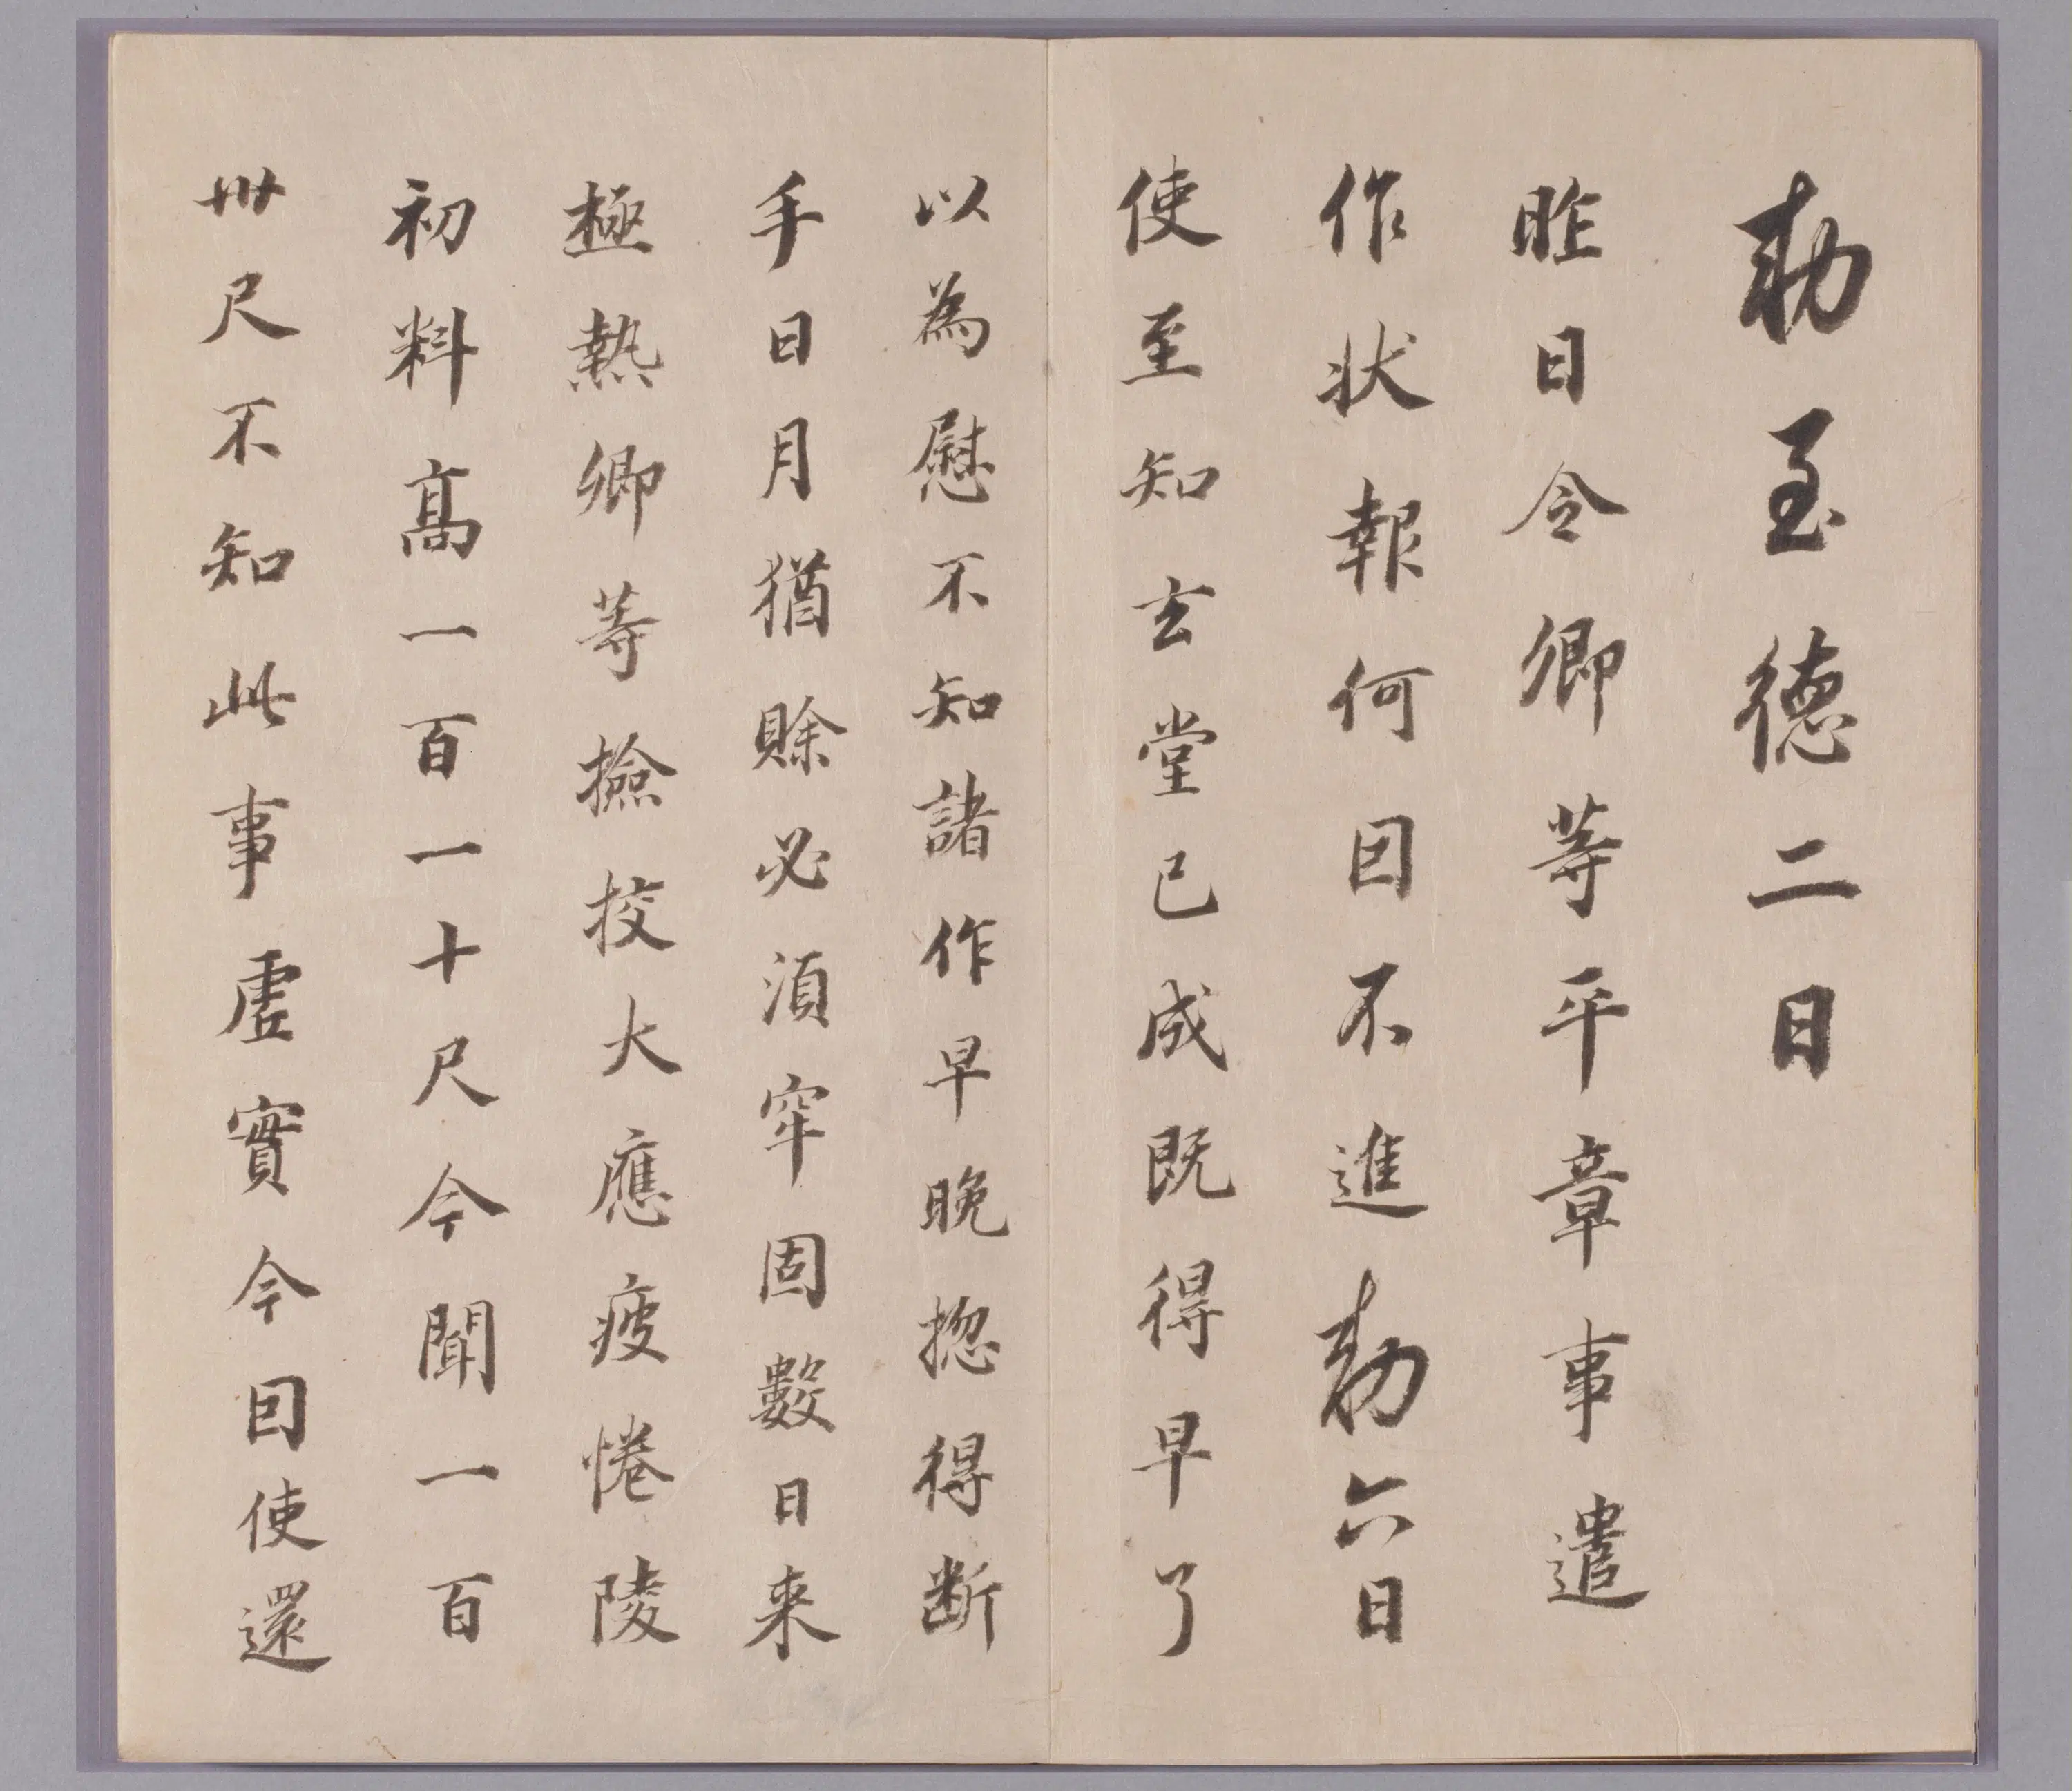 勅至德二日
昨日令卿等平章事遣
作狀報何因不進勅六日
使至知玄堂已成既得早了
以為慰不知諸作早晚捴得断
手日月猶賒必湏牢固數日来
極熱卿等撿挍大應疲惓陵
初料髙一百一十尺今聞一百
卅尺不知此事虛實今因使還